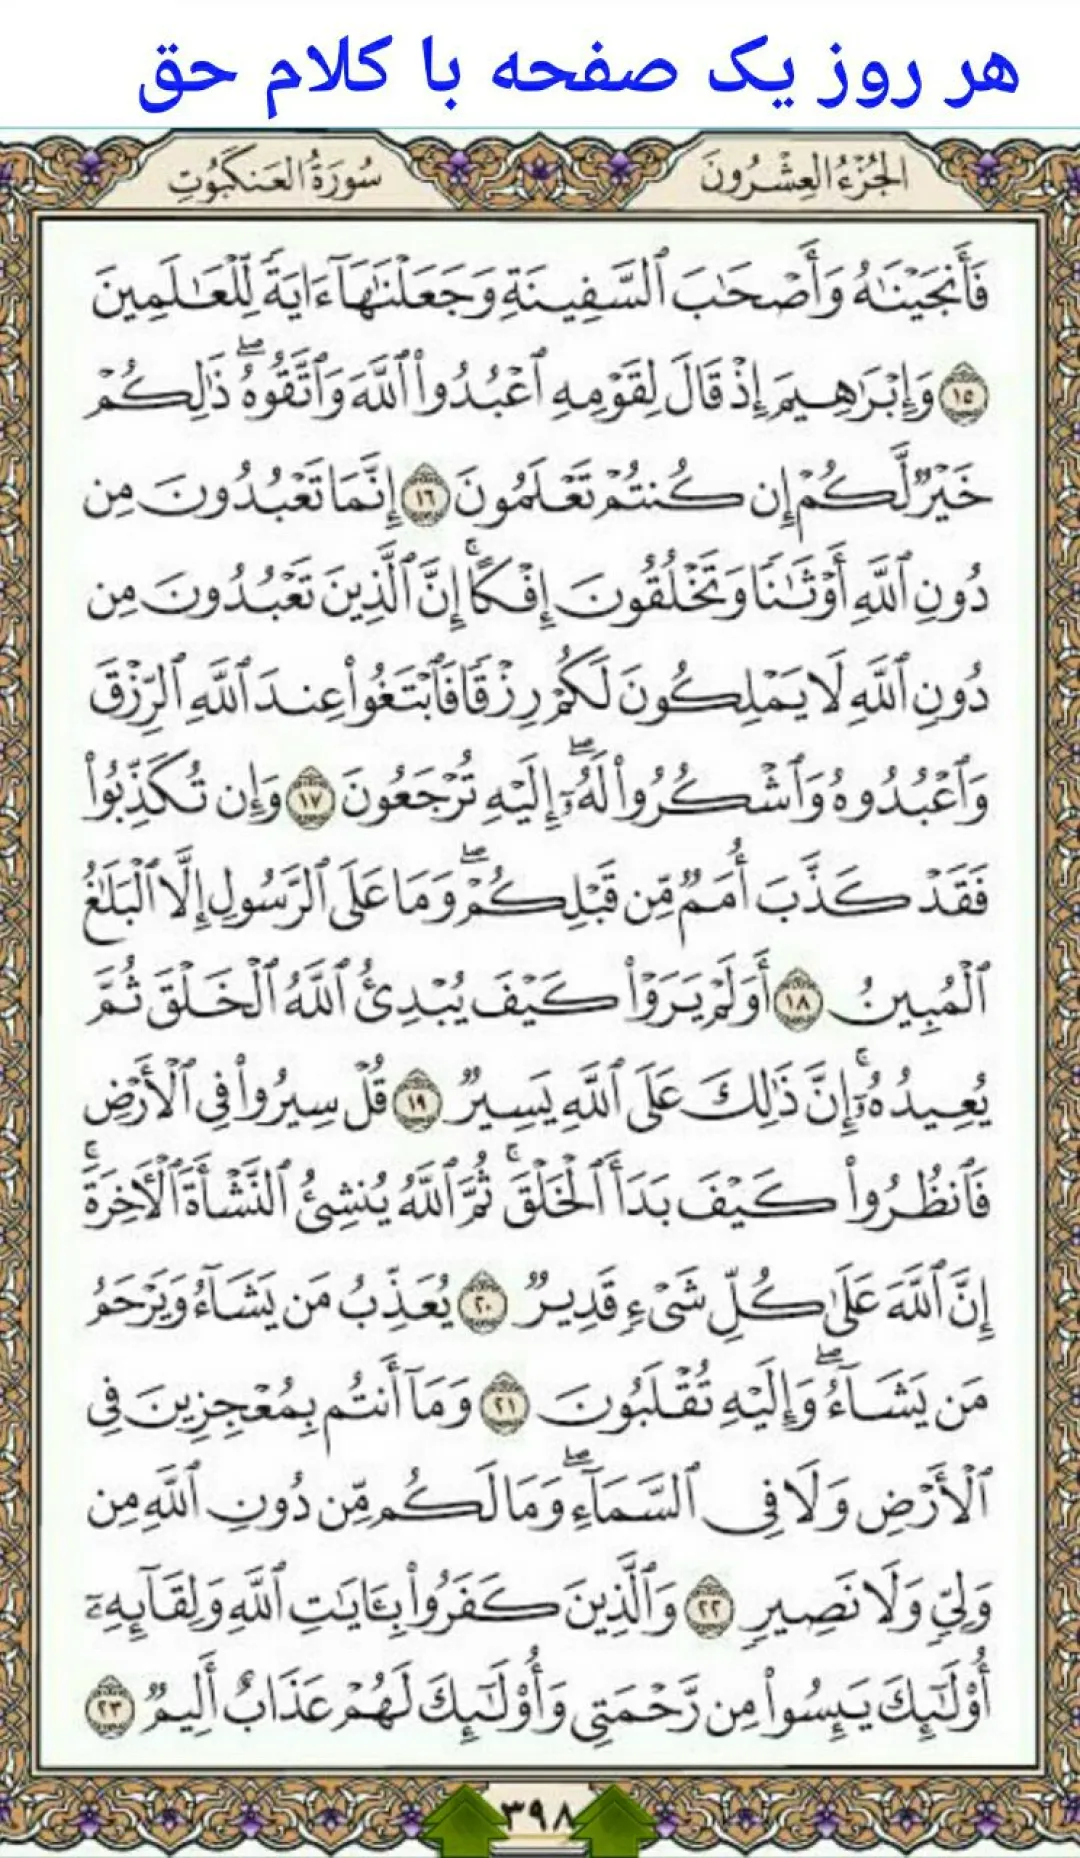 هر روز یک صفحه با کلام حق
الجُزْءُ العِشْرُونَ
سُورَةُ العَنكَبُوتِ
فَأَنجَيْنَـٰهُ وَأَصْحَـٰبَ ٱلسَّفِينَةِ وَجَعَلْنَـٰهَآ ءَايَةً لِّلْعَـٰلَمِينَ
١٥ وَإِبْرَٰهِيمَ إِذْ قَالَ لِقَوْمِهِ ٱعْبُدُوا۟ ٱللَّهَ وَٱتَّقُوهُ ۖ ذَٰلِكُمْ
خَيْرٌ لَّكُمْ إِن كُنتُمْ تَعْلَمُونَ ١٦ إِنَّمَا تَعْبُدُونَ مِن
دُونِ ٱللَّهِ أَوْثَـٰنًا وَتَخْلُقُونَ إِفْكًا ۚ إِنَّ ٱلَّذِينَ تَعْبُدُونَ مِن
دُونِ ٱللَّهِ لَا يَمْلِكُونَ لَكُمْ رِزْقًا فَٱبْتَغُوا۟ عِندَ ٱللَّهِ ٱلرِّزْقَ
وَٱعْبُدُوهُ وَٱشْكُرُوا۟ لَهُۥٓ ۖ إِلَيْهِ تُرْجَعُونَ ١٧ وَإِن تُكَذِّبُوا۟
فَقَدْ كَذَّبَ أُمَمٌ مِّن قَبْلِكُمْ ۖ وَمَا عَلَى ٱلرَّسُولِ إِلَّا ٱلْبَلَـٰغُ
ٱلْمُبِينُ ١٨ أَوَلَمْ يَرَوْا۟ كَيْفَ يُبْدِئُ ٱللَّهُ ٱلْخَلْقَ ثُمَّ
يُعِيدُهُۥٓ ۚ إِنَّ ذَٰلِكَ عَلَى ٱللَّهِ يَسِيرٌ ١٩ قُلْ سِيرُوا۟ فِى ٱلْأَرْضِ
فَٱنظُرُوا۟ كَيْفَ بَدَأَ ٱلْخَلْقَ ۚ ثُمَّ ٱللَّهُ يُنشِئُ ٱلنَّشْأَةَ ٱلْـَٔاخِرَةَ ۚ
إِنَّ ٱللَّهَ عَلَىٰ كُلِّ شَىْءٍ قَدِيرٌ ٢٠ يُعَذِّبُ مَن يَشَآءُ وَيَرْحَمُ
مَن يَشَآءُ ۖ وَإِلَيْهِ تُقْلَبُونَ ٢١ وَمَآ أَنتُم بِمُعْجِزِينَ فِى
ٱلْأَرْضِ وَلَا فِى ٱلسَّمَآءِ ۖ وَمَا لَكُم مِّن دُونِ ٱللَّهِ مِن
وَلِىٍّ وَلَا نَصِيرٍ ٢٢ وَٱلَّذِينَ كَفَرُوا۟ بِـَٔايَـٰتِ ٱللَّهِ وَلِقَآئِهِۦٓ
أُو۟لَـٰٓئِكَ يَئِسُوا۟ مِن رَّحْمَتِى وَأُو۟لَـٰٓئِكَ لَهُمْ عَذَابٌ أَلِيمٌ ٢٣
٣٩٨